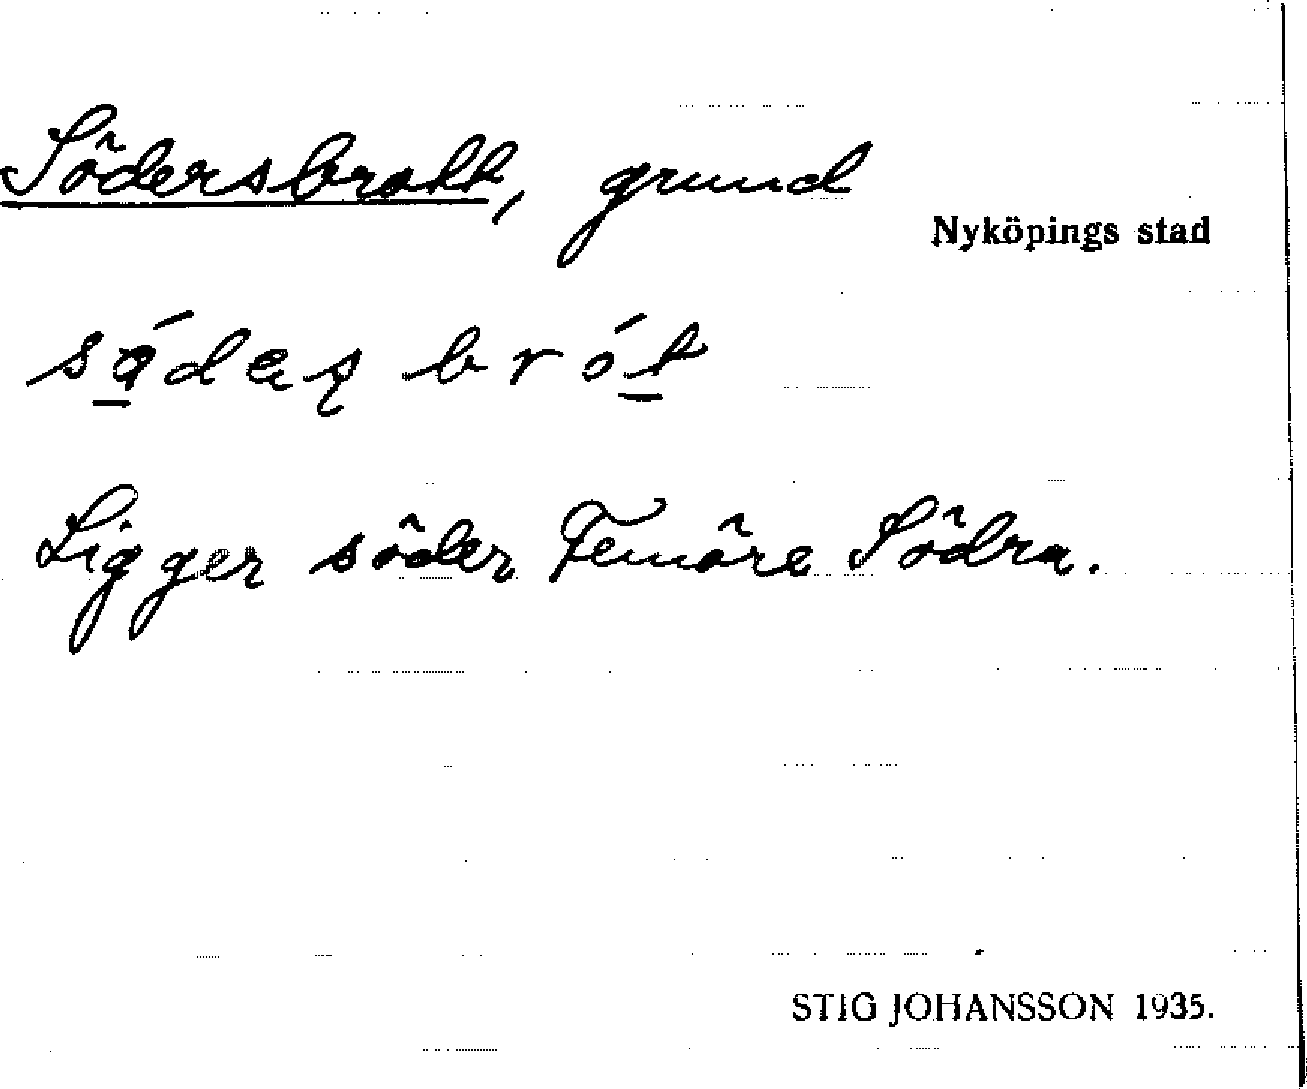 Södersbrott, grund
Nyköpings stad
Ligger söder Femöre Södra.
STIG JOHANSSON 1935.